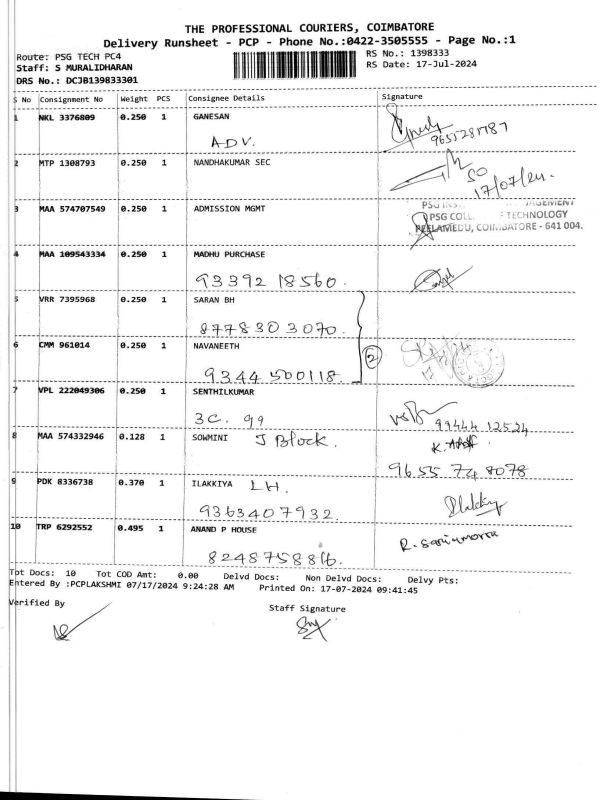 THE PROFESSIONAL COURIERS, COIMBATORE
Delivery Runsheet - PCP - Phone No.:0422-3505555 - Page No.:1
Route: PSG TECH PC4
RS No.: 1398333
Staff: S MURALIDHARAN
RS Date: 17-Jul-2024
DRS No.: DCJB139833301
S No Consignment No Weight PCS Consignee Details Signature
1 NKL 3376809 0.250 1 GANESAN
ADV.
2 MTP 1308793 0.250 1 NANDHAKUMAR SEC
SO
17/07/24.
3 MAA 574707549 0.250 1 ADMISSION MGMT
PSG COLL TECHNOLOGY
PEELAMEDU, COIMBATORE - 641 004.
4 MAA 109543334 0.250 1 MADHU PURCHASE
93392 18560.
5 VRR 7395968 0.250 1 SARAN BH
8778303070.
6 CMM 961014 0.250 1 NAVANEETH
2
9344 500118.
7 VPL 222049306 0.250 1 SENTHILKUMAR
3C. 99
99444 12524
8 MAA 574332946 0.128 1 SOWMINI J Block.
9655 748078
9 PDK 8336738 0.370 1 ILAKKIYA LH.
9363407932.
10 TRP 6292552 0.495 1 ANAND P HOUSE
Tot Docs: 10 Tot COD Amt: 0.00 Delvd Docs: Non Delvd Docs: Delvy Pts:
Entered By :PCPLAKSHMI 07/17/2024 9:24:28 AM Printed On: 17-07-2024 09:41:45
Verified By
Staff Signature